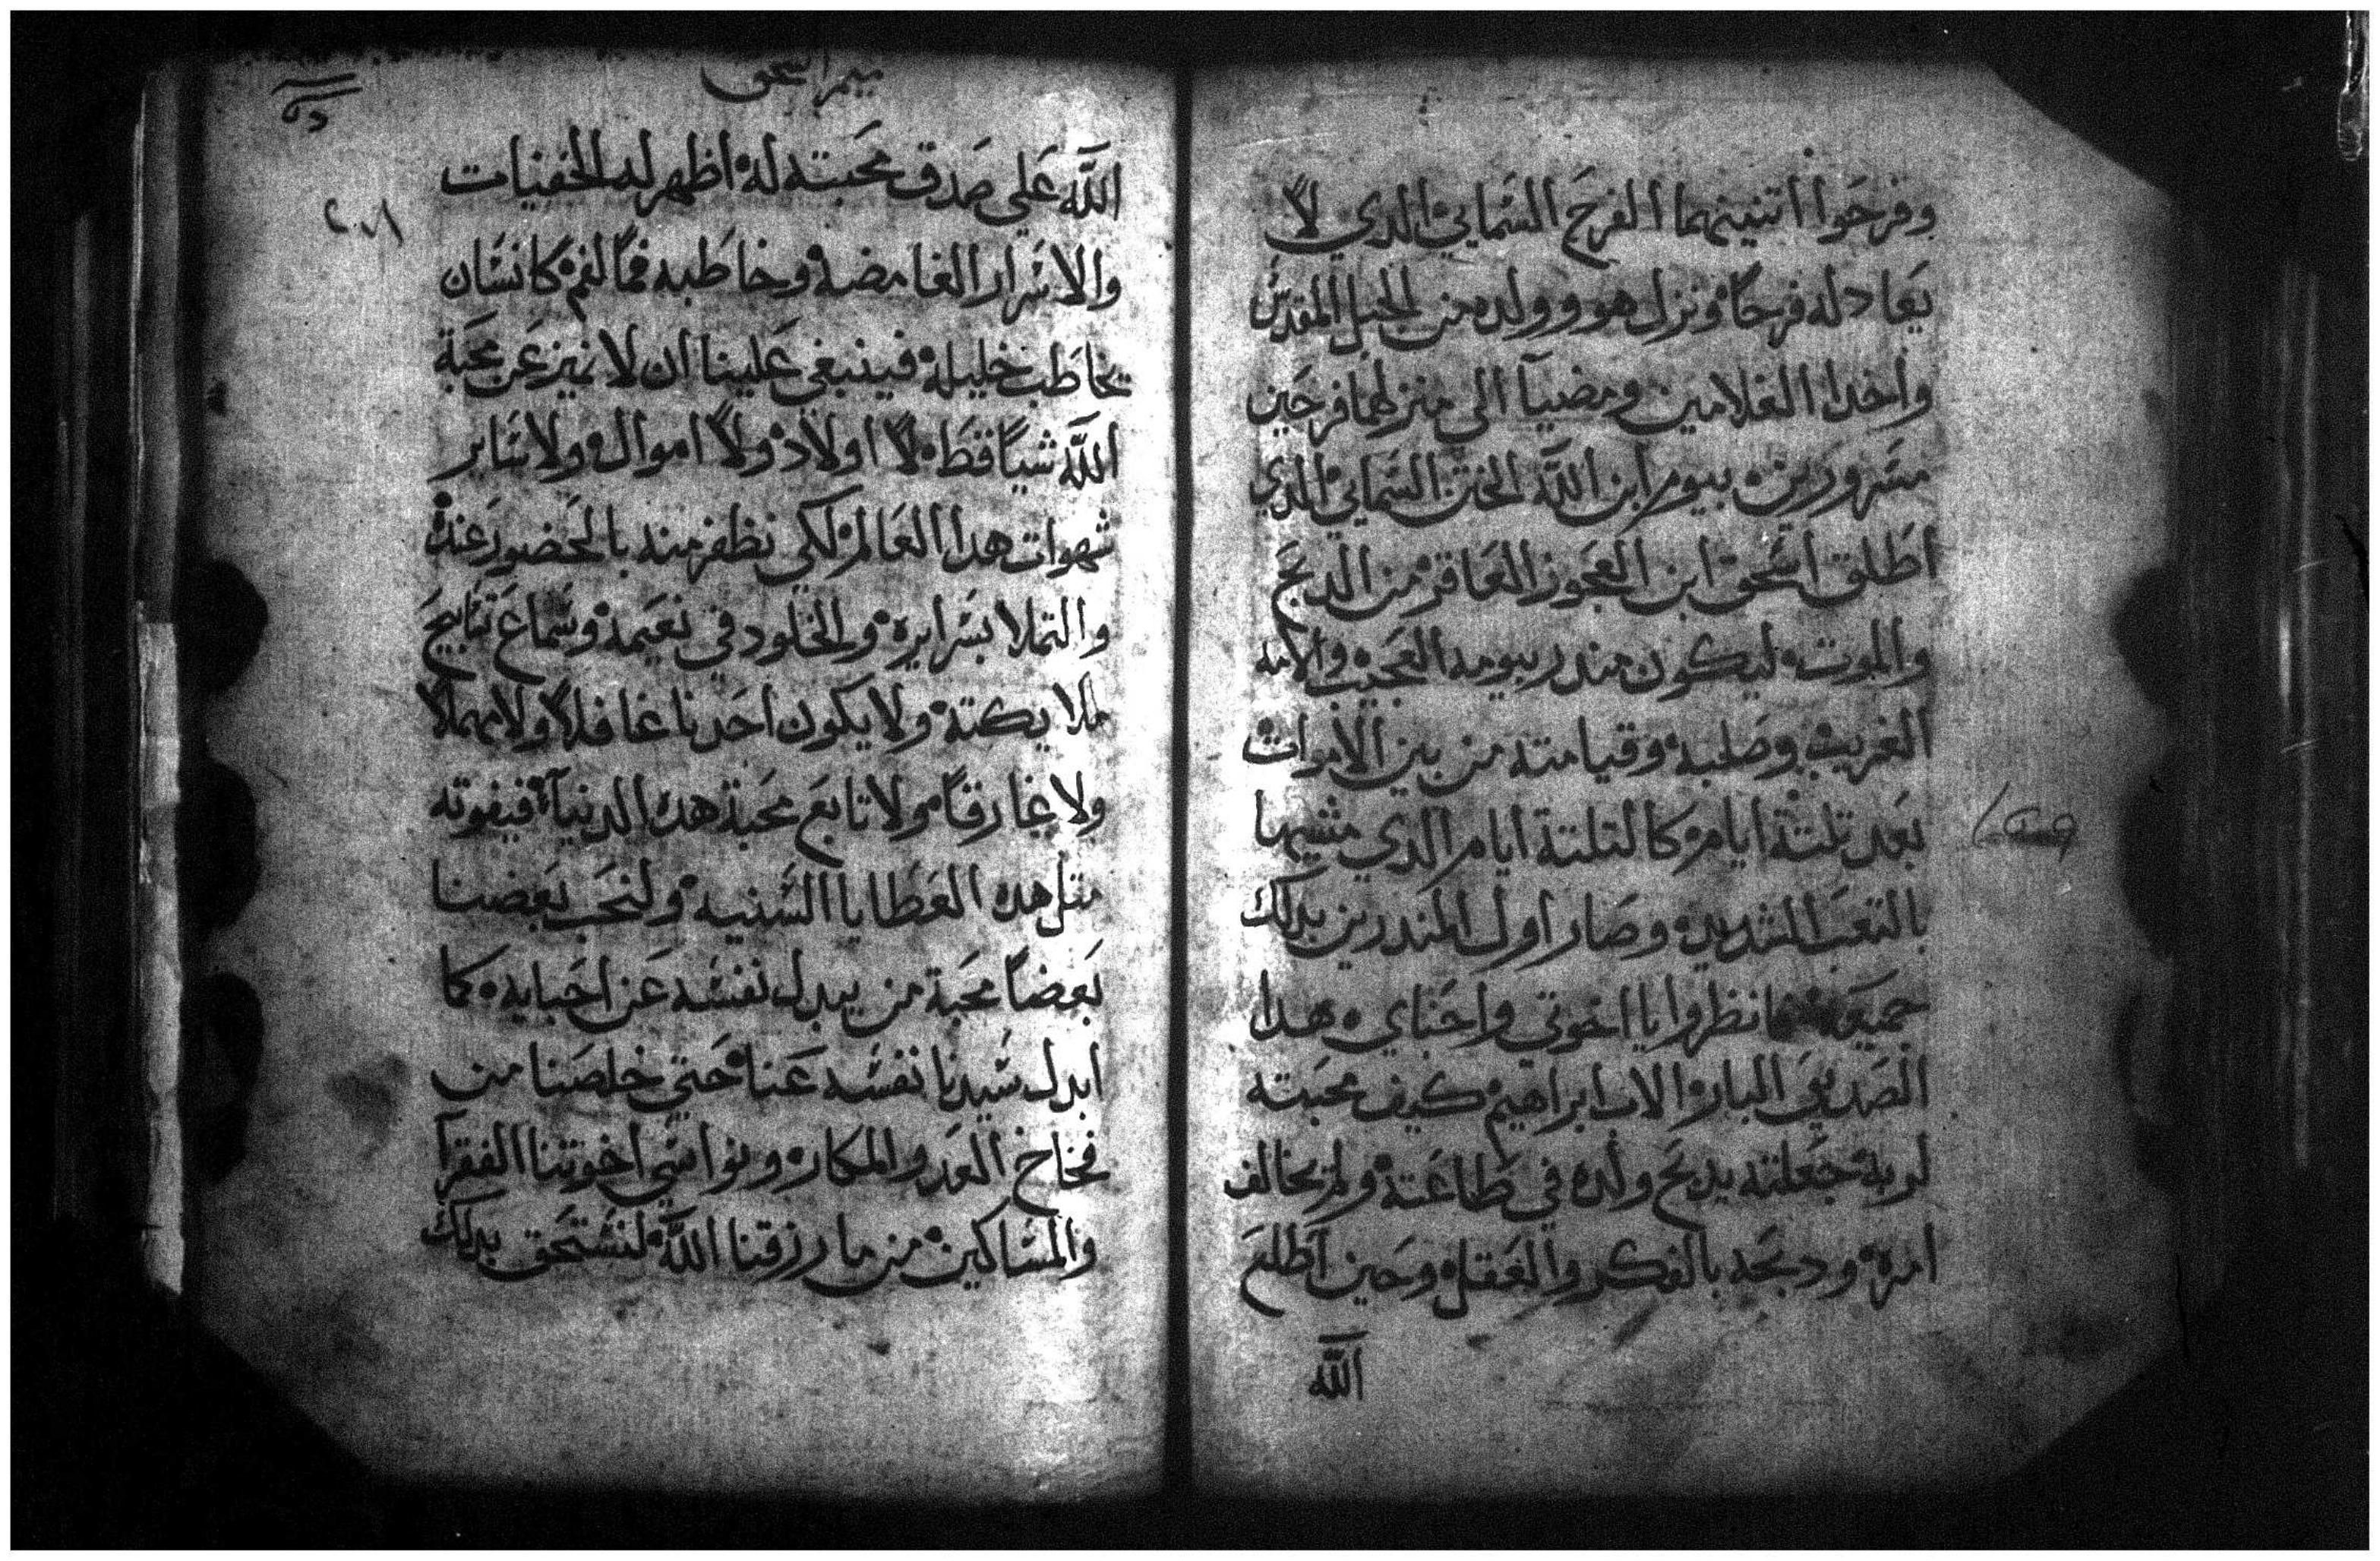 وفرحوا اتنينهما الفرح السماني الدي لا
يعادله فرحا ونزل هو وولده من الجبل المقدس
واخدا الغلامين ومضيا الي منزلهما فرحين
مسرورين بيوم ابن الله الختن السماني الدي
اطلق اسحق ابن العجوز العاقر من الدبح
والموت ليكون مندر بيومه العجيب والامه
الغريبه وصلبه وقيامته من بين الاموات
بعد تلتة ايام كالتلتة ايام الدي مشيها
بالتعب الشديد وصار اول المندرين بدلك
جميعه فانظروا يا اخوتي واحباي هدا
الصديق البار الاب ابراهيم كيف محبته
لربه جعلته يدبح ولده في طاعته ولم يخالف
امره ودبحه بالفكر والعقل وحين اطلع
الله
ميمر اسحق
٢٠١
الله علي صدق محبته له اظهر له الخفيات
والاسرار الغامضه وخاطبه فما لفم كانسان
يخاطب خليله فينبغي علينا ان لا نميز عن محبة
الله شيا قط لا اولاد ولا اموال ولا ساير
شهوات هدا العالم لكي نظفر منه بالحضور عنده
والتملا بسرايره والخلود في نعيمه وسماع تسابيح
ملايكته ولا يكون احدنا غافلا ولا مهملا
ولا غارقا ولا تابع محبة هده الدنيا فيفوته
متل هده العطايا السنيه ولنحب بعضنا
بعضا محبة من يبدل نفسه عن احبايه كما
ابدل سيدنا نفسه عنا حتي خلصنا من
فخاخ العدو المكار ونواسي اخوتنا الفقرا
والمساكين من ما رزقنا الله لنستحق بدلك